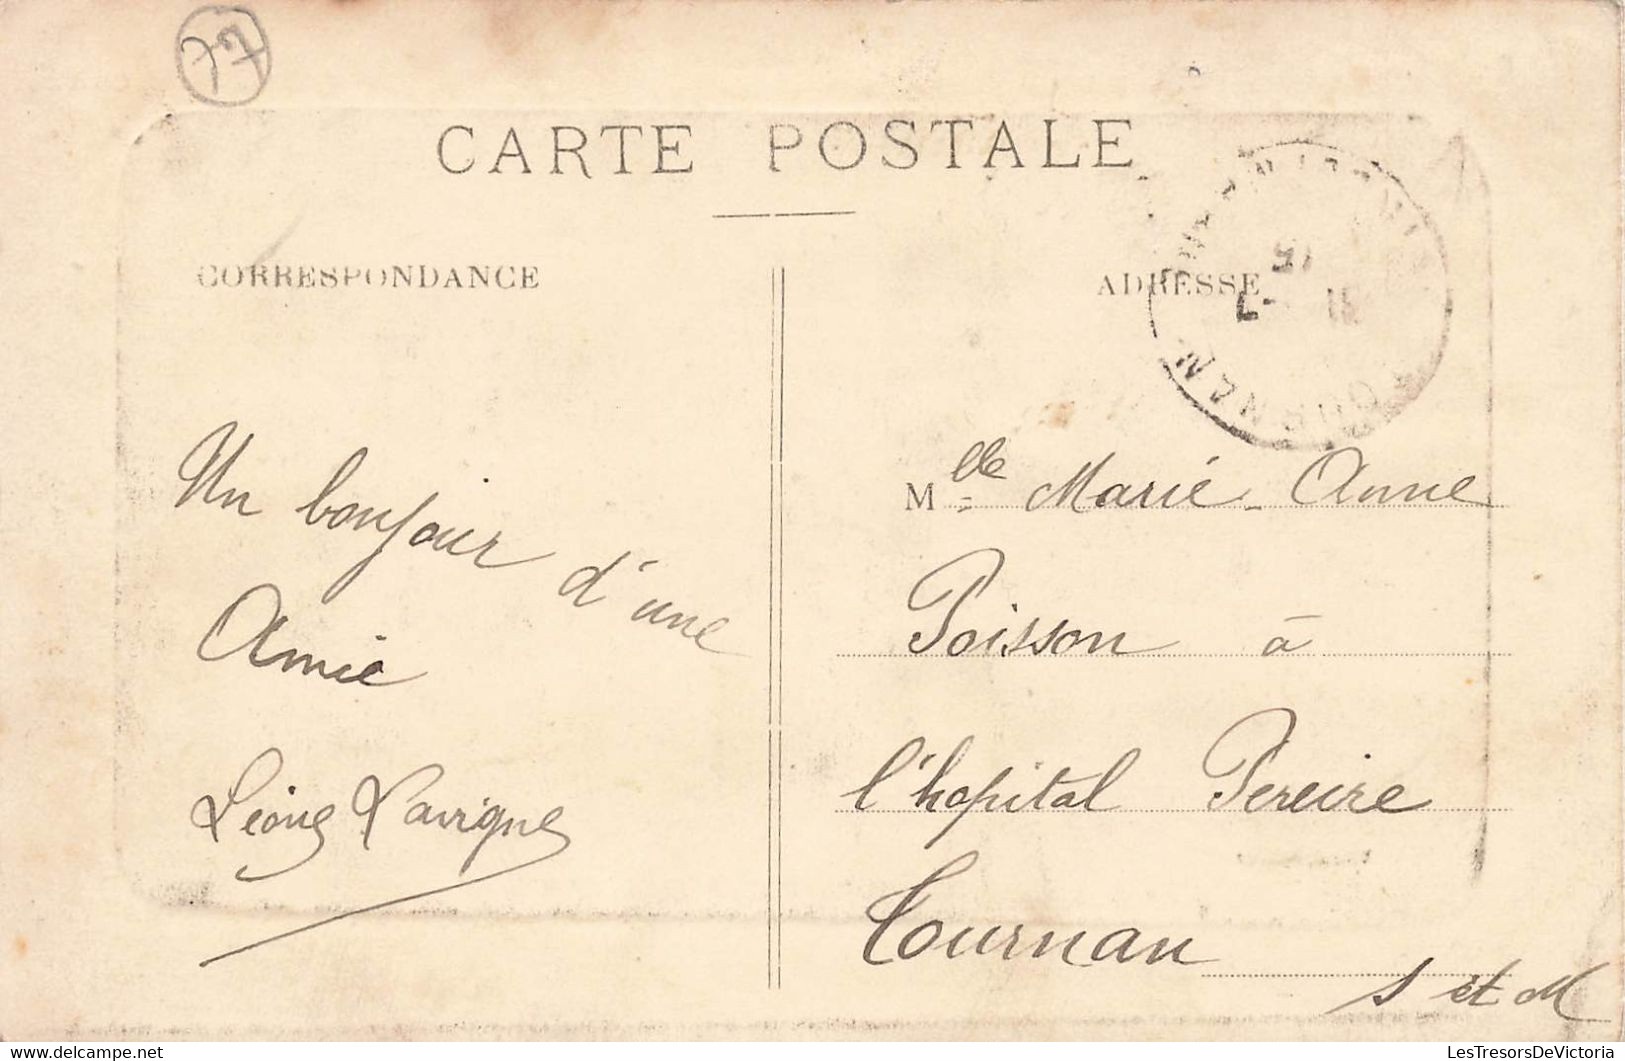 77
CARTE POSTALE
CORRESPONDANCE
ADRESSE
TOURNAN
Un bonjour d'une
Amie
Léone Lavigne
Mlle Marie-Anne
Poisson à
l'hopital Pereire
Tournan
S et M
LesTresorsDeVictoria
www.delcampe.net